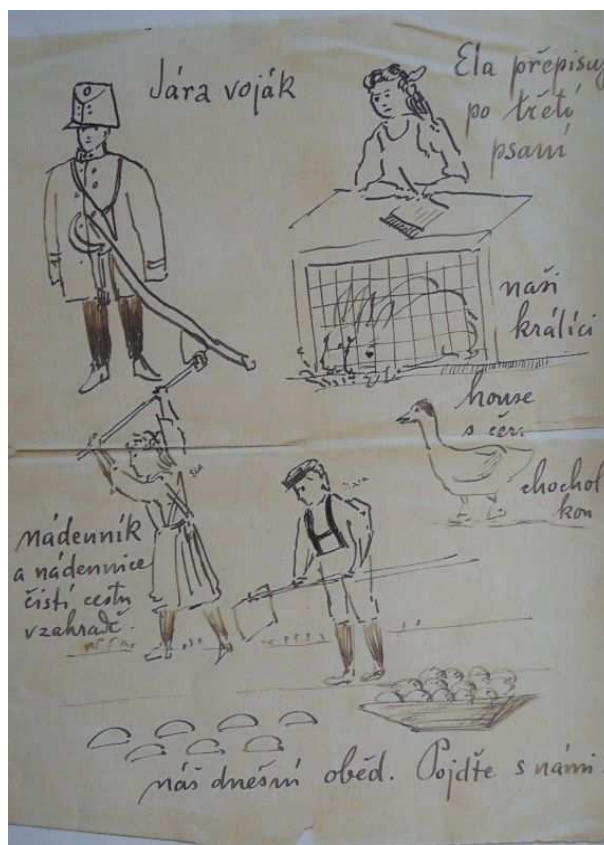 Jára voják
Ela přepisuj
po třetí
psaní
naši
králíci
house
s čer.
chochol
kou
nádenník
a nádennice
čistí cestu
vzahradě.
náš dnešní oběd. Pojďte s námi.